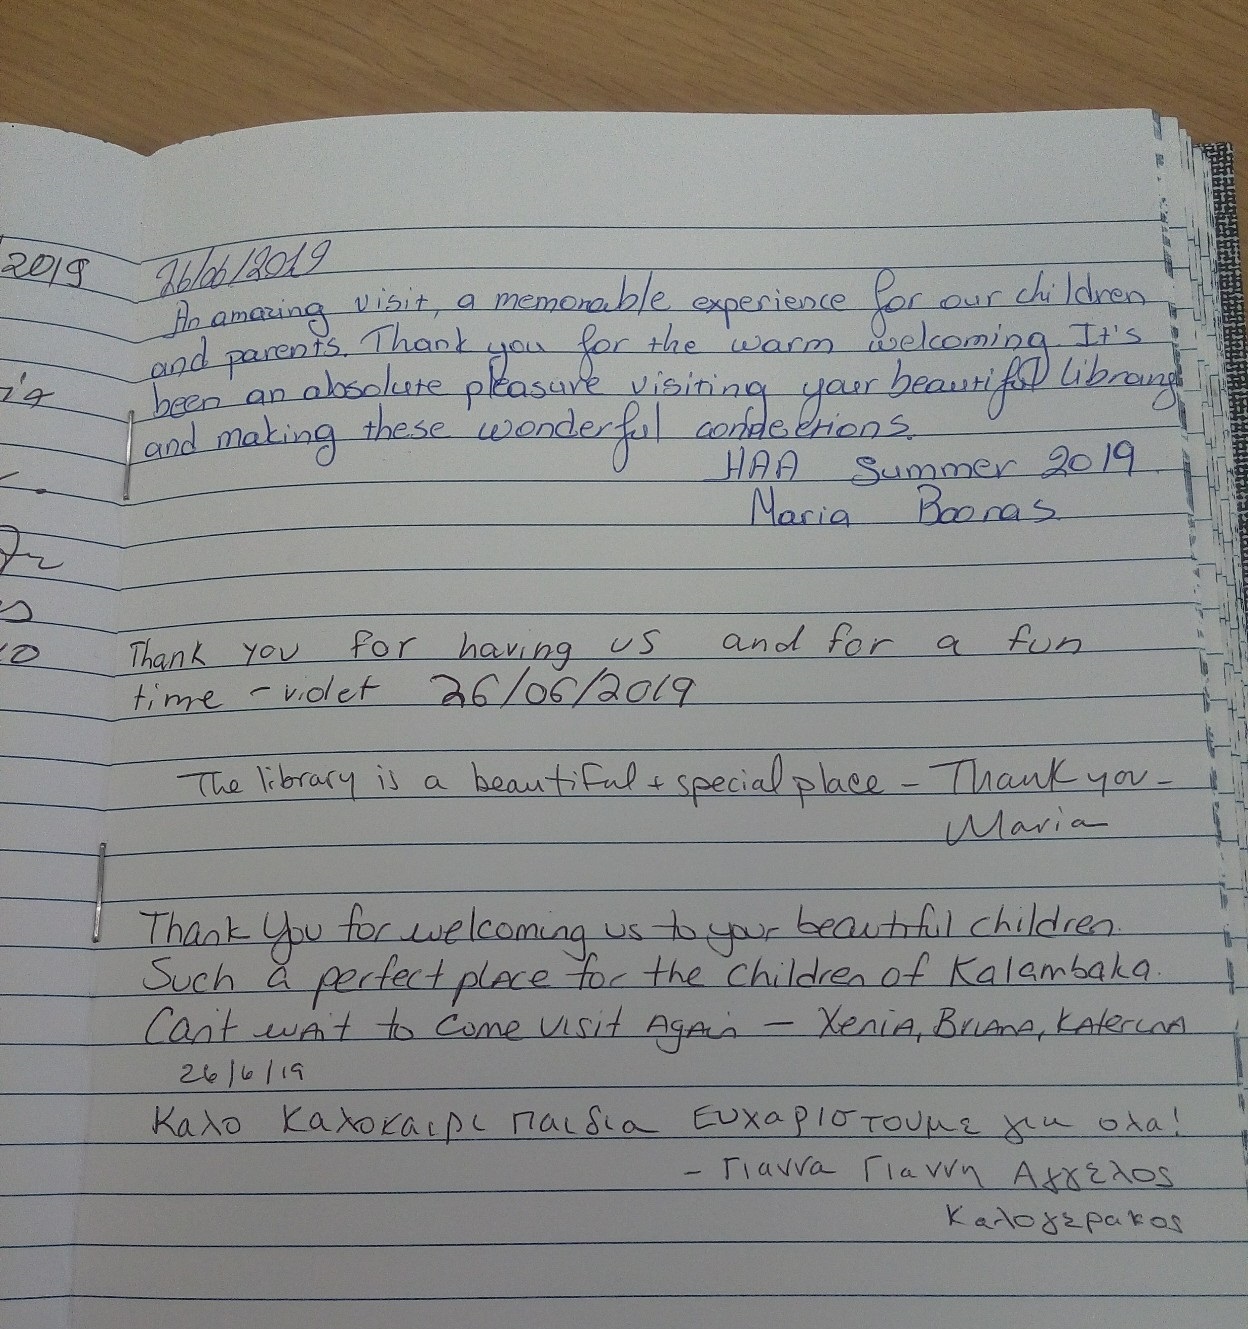 2019
26/06/2019
An amazing visit, a memorable experience for our children
and parents. Thank you for the warm welcoming. It's
been an absolute pleasure visiting your beautiful library
and making these wonderful
HAA Summer 2019
Maria
Thank you for having us and for a fun
time - violet 26/06/2019
The library is a beautiful + special place - Thank you -
Maria
Thank You for welcoming us to your beautiful children.
Such a perfect place for the children of Kalambaka.
Can't wait to come visit Again - Xenia, Briana, Katerina
26/6/19
Καλο Καλοκαιρι παιδια Ευχαριστουμε για ολα!
- Γιαννα Γιαννη Αγγελος
Καλογερακος